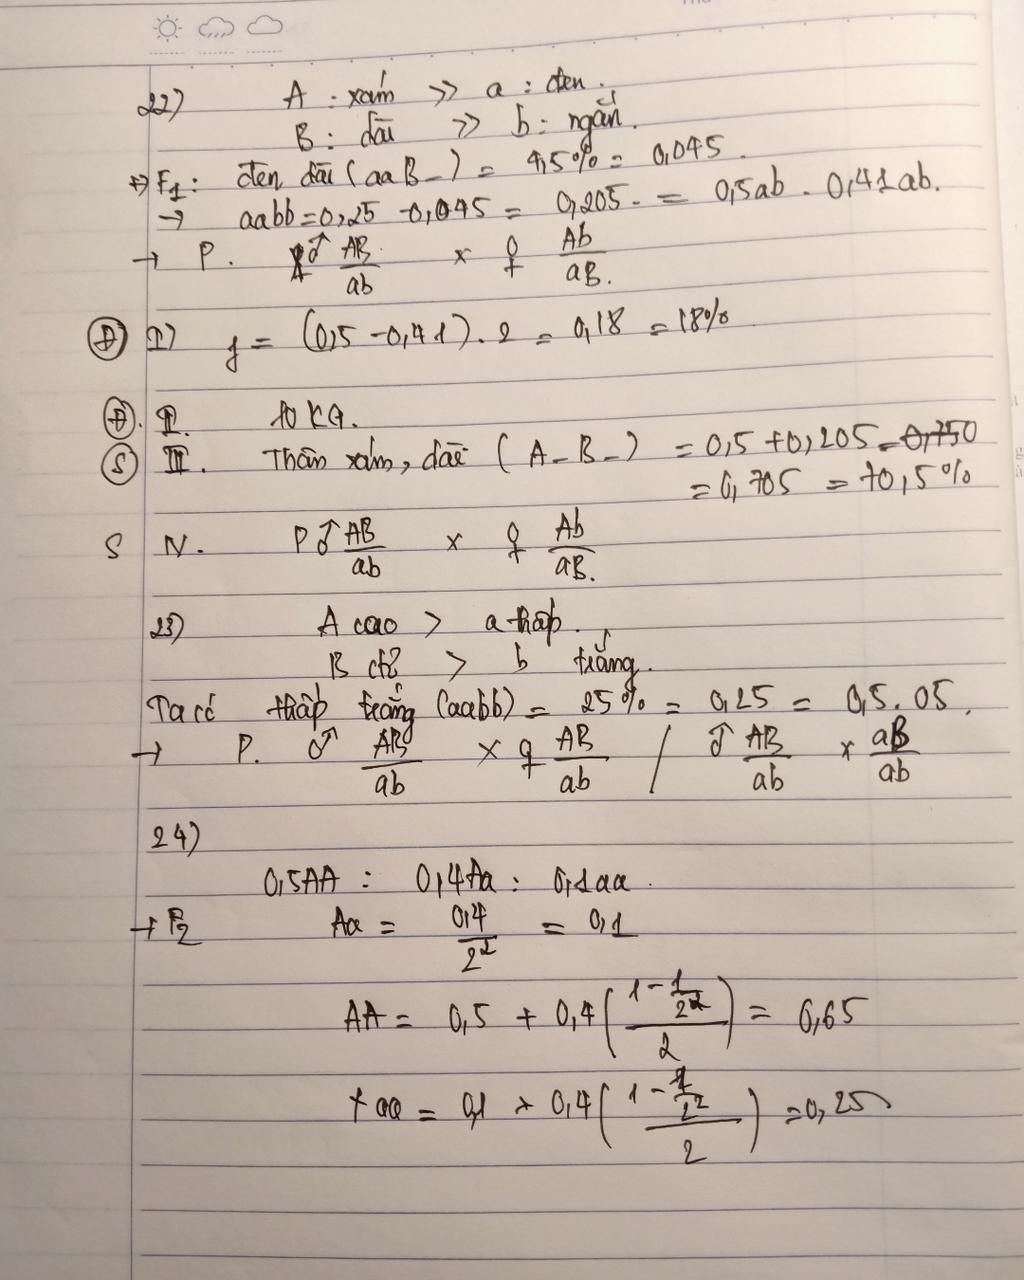 22) A : xám >> a : đen.
B : dài >> b : ngắn.
=> F1 : đen dài (aaB_) = 4,5% = 0,045.
→ aabb = 0,25 - 0,045 = 0,205. = 0,5ab . 0,41ab.
→ P. ♂ AB/ab x ♀ Ab/aB.
Đ I) f = (0,5 - 0,41) . 2 = 0,18 = 18%
Đ. II. 10 KG.
S III. Thân xám, dài (A_B_) = 0,5 + 0,205 = 0,750
= 0,705 = 70,5%
S IV. P ♂ AB/ab x ♀ Ab/aB.
23) A cao > a thấp.
B đỏ > b trắng.
Ta có thấp trắng (aabb) = 25% = 0,25 = 0,5.05.
→ P. ♂ AB/ab x ♀ AB/ab / ♂ AB/ab x aB/ab
24)
0,5AA : 0,4Aa : 0,1aa.
→ F2 Aa = 0,4/2² = 0,1
AA = 0,5 + 0,4((1 - 1/2²)/2) = 0,65
+ aa = 0,1 + 0,4((1 - 1/2²)/2) = 0,25